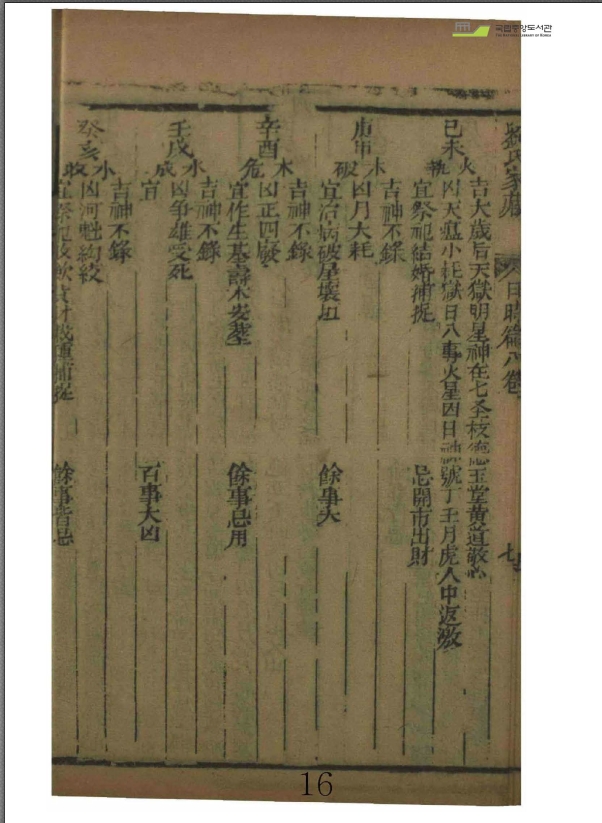 국립중앙도서관
THE NATIONAL LIBRARY OF KOREA
氏家藏 日時 八卷 七
己未火執
吉大歲后天獄明星神在七圣枝德玉堂黄道敬心
凶天瘟小耗獄日八專火星因日神號丁壬月虎人中返激
宜祭祀結婚捕捉 忌開市出財
庚申木破
吉神不錄
凶月大耗
宜治病破屋壞垣 餘事大
辛酉木危
吉神不錄
凶正四廢
宜作生基壽木安葬 餘事忌用
壬戌水成
吉神不錄
凶爭雄受死
宜 百事大凶
癸亥水收
吉神不錄
凶河魁勾絞
宜祭祀 捕捉 餘事皆忌
16